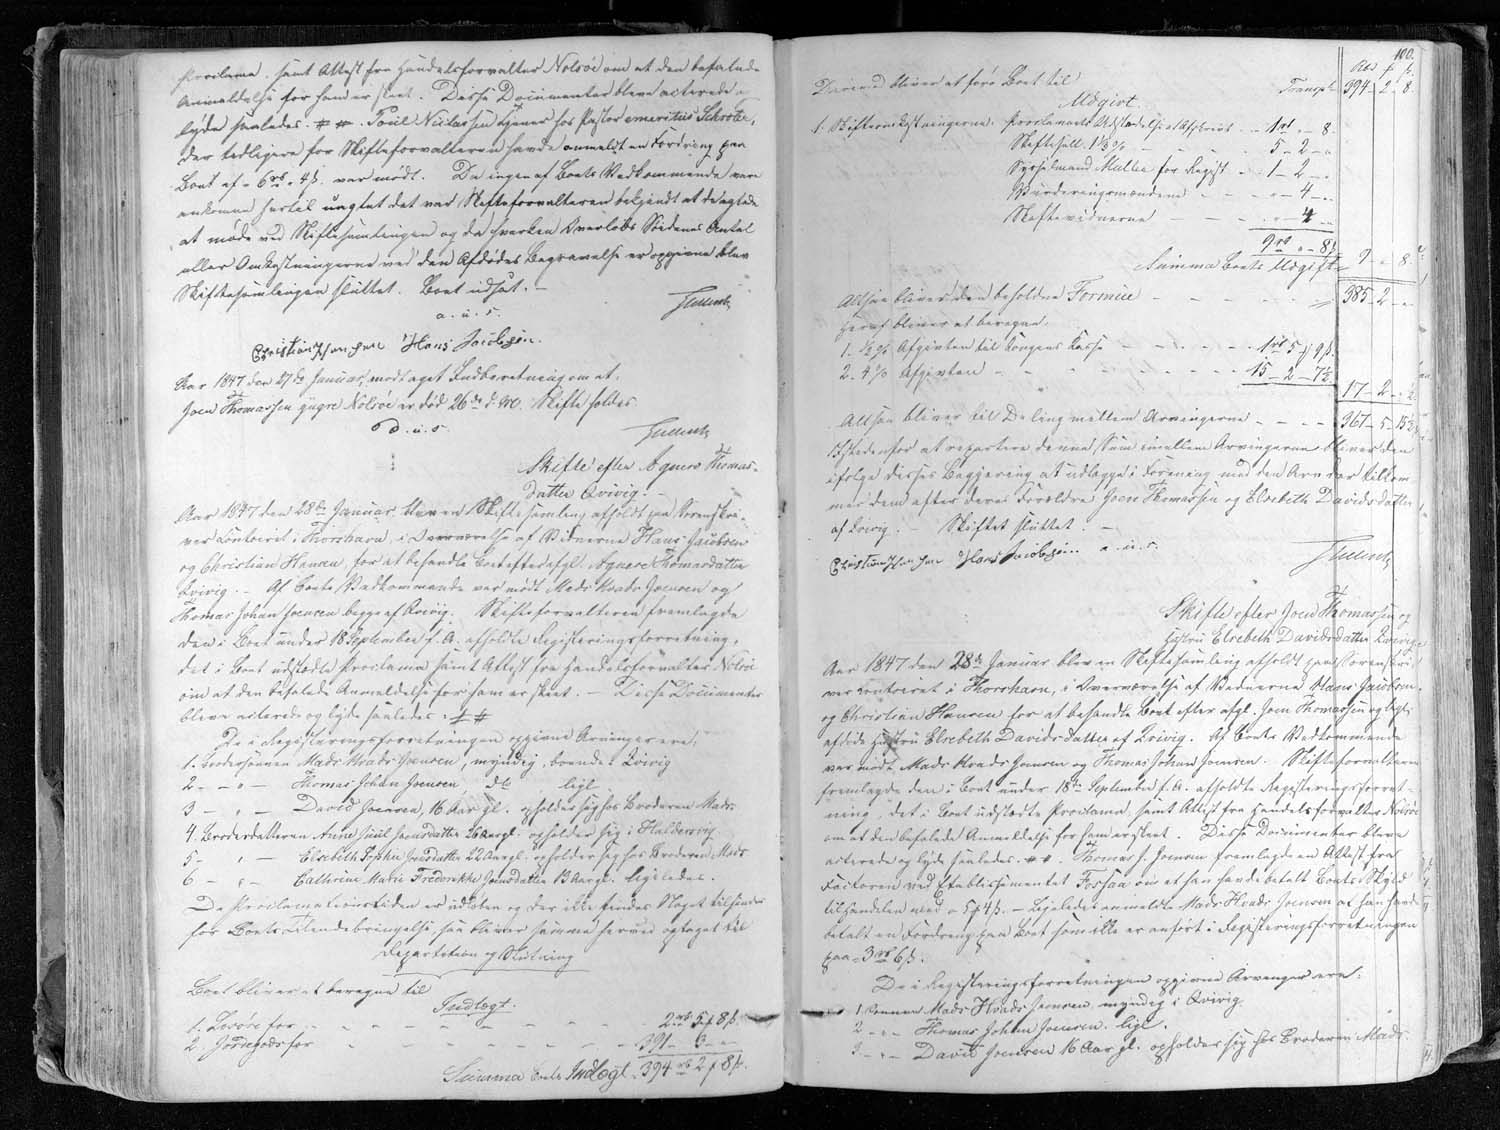 Proclama, samt Attest fra Handelsforvalter Nolsøe om at den befalede
Anmeldelse for ham er skeet. Disse Documenter bleve acterede og
lyde saaledes. ## Poul Niclassen tjener hos Pastor emeritus Schrøter,
der tidligere for Skifteforvalteren havde anmeldt en Fordring paa
Boet af 6 rbd 4 ß. var mødt. Da ingen af Boets Vedkommende vare
ankomne hertil uagtet det var Skifteforvalteren bekjendt at de agtede
at møde ved Skiftesamlingen og da hverken Qverlods Søidenes Antal
eller Omkostningerne ved den Afdødes Begravelse er opgivne blev
Skiftesamlingen sluttet. Boet udsat. –
a. u. s.
Tillisch
Christian Hansen Hans Jacobsen.
Aar 1847 den 27de Januar, modtaget Indberetning om at
Joen Thomassen yngre Nolsøe er død 26de d. M. Skifte holdes
D. u. s.
Tillisch
Skifte efter Agnere Thomas-
datter Qvivig. –
Aar 1847 den 28de Januar, blev en Skiftesamling afholdt paa Sorenskri-
ver Contoiret i Thorshavn, i Overværelse af Vidnerne Hans Jacobsen
og Christian Hansen, for at behandle Boet efter afgl. Agnere Thomasdatter
Qvivig. – Af Boets Vedkommende var mødt Mads Kvads Joensen og
Thomas Johan Joensen begge af Qvivig. Skifteforvalteren fremlagde
den i Boet under 18 September f. A. afholdte Registeringsforretning,
det i Boet udstedte Proclama samt Attest fra Handelsforvalter Nolsøe
om at den befalede Anmeldelse for ham er skeet. – Disse Documenter
bleve acterede og lyde saaledes: ##
De i Registeringsforretningen opgivne Arvinger ere,
1. Brodersønnen Mads Kvads Joensen, myndig, boende i Qvivig
2 – " – Thomas Johan Joensen do ligl
3 – " – David Joensen, 16 Aar gl. opholder sig hos Broderen Mads
4. Broderdatteren Anne Juul Joensdatter 26 Aar gl. opholder sig i Haldersvig
5 – " – Elsebeth Sophie Joensdatter 22 Aar gl. opholder sig hos Broderen Mads
6 – " – Cathrine Marie Frederikke Joensdatter 13 Aar gl. ligeledes.
Da Proclamationstiden er udløben og der ikke findes Noget til Hinder
for Boets Tilendebringelse, saa bliver samme herved optaget til
Repartition og Slutning
Boet bliver at beregne til
Indtægt.
1. Løsøre for – – – 2 rbd 5 f 8 ß.
2. Jordegods for – – – 391 – 3 – "
Summa Boets Indtægt 394 rbd 2 f 8 ß.
100.
Rbd f ß.
Derimod bliver at føre Boet til Transpt 394 – 2 – 8.
Udgivt.
1. Skifteomkostningerne. Proclamaets Udstedelse og Afskrivt – 1 rbd " 8.
Skiftesall. 1 1/3 % – – – 5 – 2 – "
Sysselmand Müller for Regist – 1 – 2 – "
Vurderingsmændene – – – 4 – "
Skiftevidnerne – – – 4 – "
9 rbd " – 8 ß
Summa Boets Udgift 9 – " 8.
Altsaa bliver den beholdne Formue – – – 385 – 2 – "
Heraf bliver at beregne,
1. 1/2 % Afgivten til Kongens Kasse – – – 1 rbd 5 f 9 ß.
2. 4 % Afgivten – – – 15 – 2 – 7 1/2
17 – 2 – " 1/2
Altsaa bliver til Deling mellem Arvingerne – – – 367 – 5 – 15 1/2
Istedenfor at repartere denne Sum imellem Arvingerne bliver den
ifølge disses Begjering at udlægge i Forening med den Arv der tilkom-
mer dem efter deres Forældre Joen Thomassen og Elsebeth Davidsdatter
af Qvivig. – Skiftet sluttet. –
Christian Hansen Hans Jacobsen. a. u. s.
Tillisch
Skifte efter Joen Thomassen og
Hustru Elsebeth Davidsdatter Qvivig
Aar 1847 den 28de Januar blev en Skiftesamling afholdt paa Sorenskri-
ver Contoiret i Thorshavn, i Overværelse af Vidnerne Hans Jacobsen
og Christian Hansen for at behandle Boet efter afgl. Joen Thomassen og ligl.
afdøde Hustru Elsebeth Davids datter af Qvivig. Af Boets Vedkommende
var mødt Mads Kvads Joensen og Thomas Johan Joensen. – Skifteforvalteren
fremlagde den i Boet under 18de September f. A. afholdte Registeringsforret-
ning, det i Boet udstedte Proclama, samt Attest fra Handelsforvalter Nolsøe
om at den befalede Anmeldelse for ham er skeet. Disse Documenter bleve
acterede og lyde saaledes. ## Thomas J. Joensen fremlagde en Attest fra
Factoren ved Etablissementet Fossaa om at han havde betalt Boets Skyld
til Handelen med 5 f 4 ß. – Ligeledes anmeldte Mads Kvads Joensen at han havde
betalt en Fordring paa Boet som ikke er anført i Registeringsforretningen
paa 3 rbd 6 ß.
De i Registeringsforretningen opgivne Arvinger ere:
1. Sønnen Mads Kvads Joensen, myndig i Qvivig
2 – " – Thomas Johan Joensen ligl.
3 – " – David Joensen 16 Aar gl. opholder sig hos Broderen Mads.